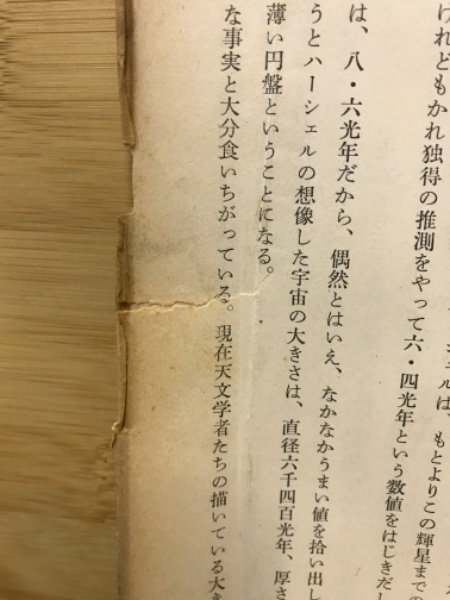 シェルは、もとよりこの輝星までの
けれどもかれ独得の推測をやって六・四光年という数値をはじきだし
は、八・六光年だから、偶然とはいえ、なかなかうまい値を拾い出し
うとハーシェルの想像した宇宙の大きさは、直径六千四百光年、厚さ
薄い円盤ということになる。
な事実と大分食いちがっている。現在天文学者たちの描いている大き